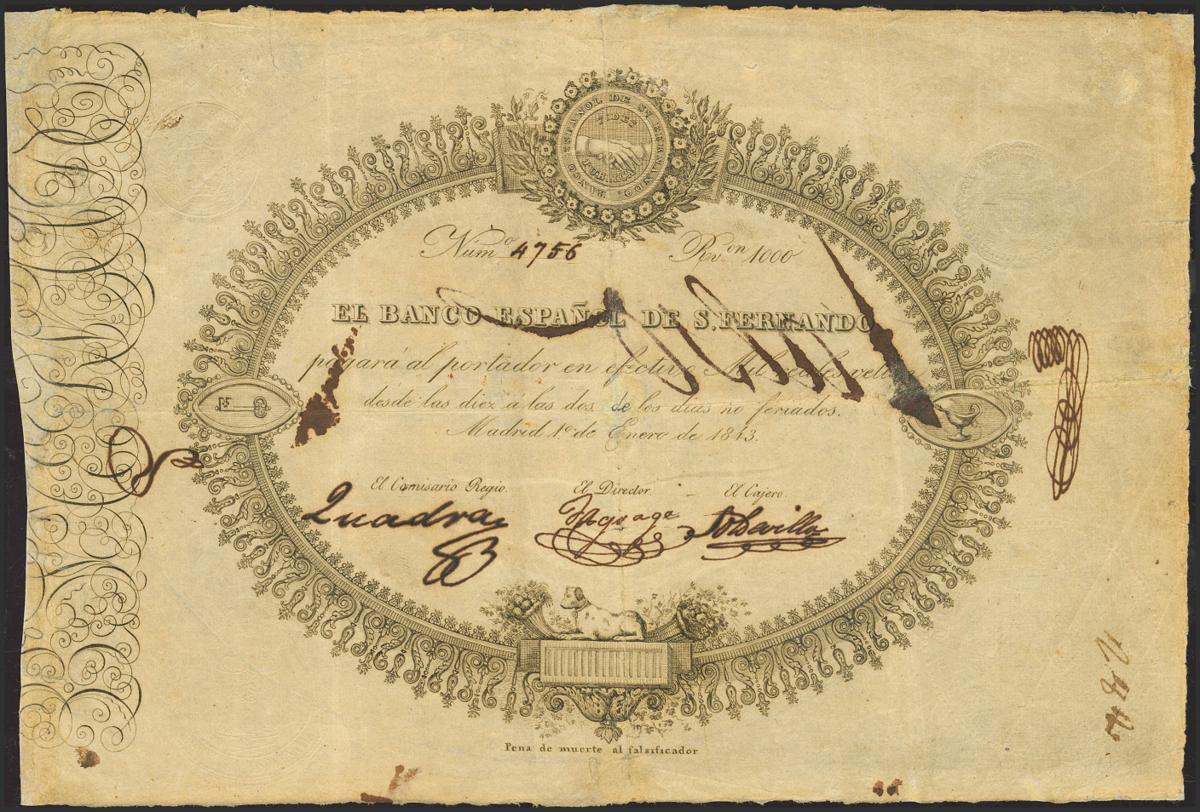 BANCO ESPAÑOL DE Sn. FERNANDO
FIDES
PUBLICA
Numo 4756 Rv.on 1000
EL BANCO ESPAÑOL DE S. FERNANDO
pagará al portador en efectivo Mil reales vellon
desde las diez á las dos de los dias no feriados.
Madrid 1o de Enero de 1843.
El Comisario Regio. El Director. El Cajero.
Quadra
Pena de muerte al falsificador